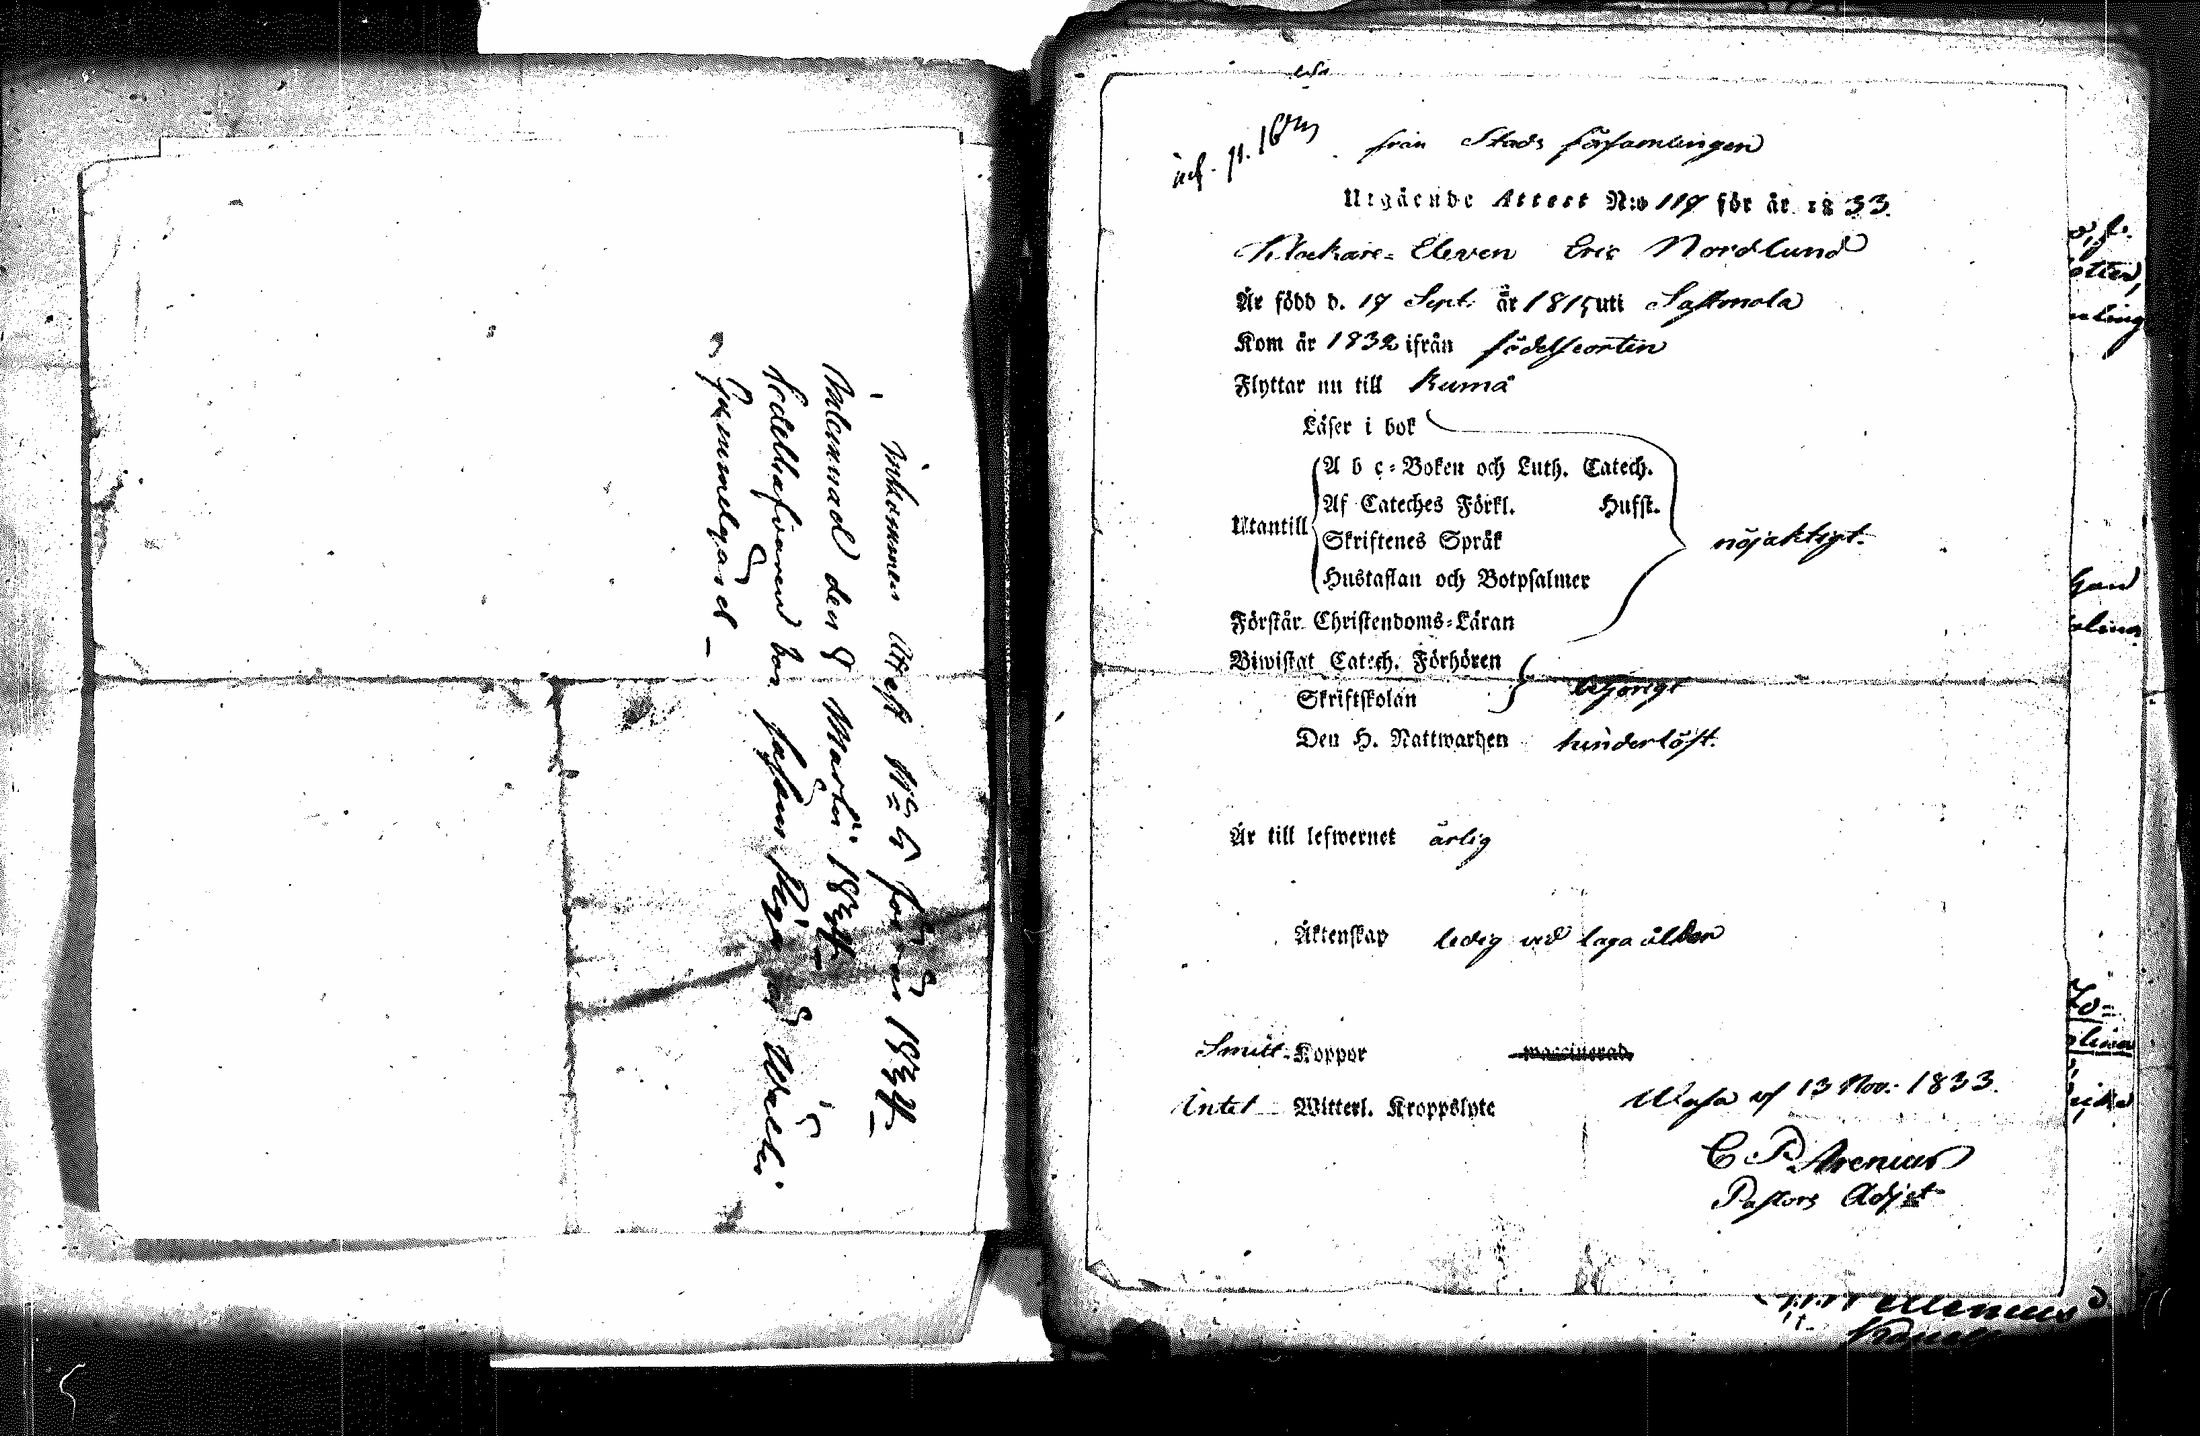 Inkommen Attest No 5 för år 1834
Inlemnad den 8 Martii 1834
Sedelhafvaren bor
Gammelgård
från Stads församlingen
Utgående Attest N:o 117 för år 1833.
Klockare-Eleven Eric Nordlund
Är född d. 17 Sept. år 1815 uti Sastmola
Kom år 1832 ifrån födelseorten
Flyttar nu till Kumå
Läser i bok
A b c-Boken och Luth. Catech.
Af Cateches Förkl. Husft.
Utantill
Skriftenes Språk
nöjaktigt.
Hustaflan och Botpsalmer
Förstår Christendoms-Läran
Biwistat Catech. Förhören
behörigt
Skriftskolan
Den H. Nattwarden hinderlöst.
Är till lefwernet ärlig
Äktenskap ledig vid laga ålder
Smitt-Koppor waccinerad.
Wasa af 13 Nov. 1833.
Intet Witterl. Kroppslyte
C P Arenius
Pastors Adjct